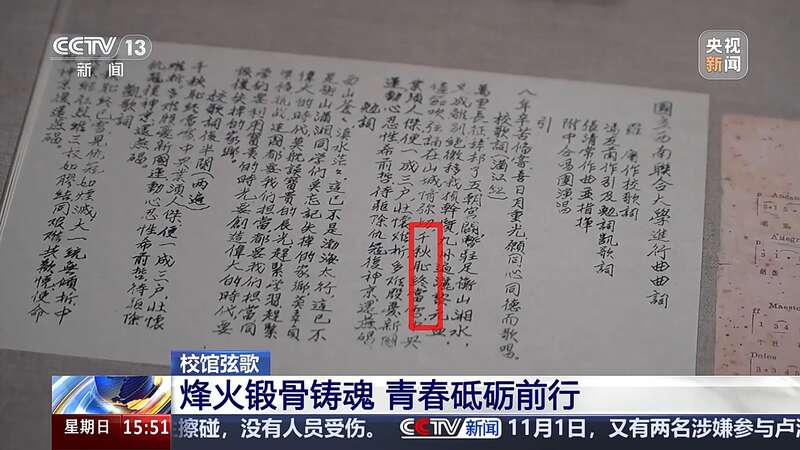 CCTV 13
新闻
央视
新闻
國立西南聯合大學進行曲曲詞
羅庸作校歌詞
馮友蘭作引及勉詞凱歌詞
張清常作曲並指揮
附中合唱團演唱
引
八年辛苦備嘗喜日月重光願同心同德而歌唱。
校歌詞(滿江紅)
萬里長征辭却了五朝宮闕暫駐足衡山湘水,
又成離別絕徼移栽楨幹質九州遍灑黎元血
儘笳吹弦誦在山城情彌切千秋恥終當雪中興
業須人傑便一成三戶壯懷難折多難殷憂新國
運動心忍性希前哲待驅除仇寇復神京還燕碣
勉詞
西山蒼々滇水茫々這已不是渤海太行這已不
是衡山瀟湘同學們莫忘記失掉的家鄉莫辜負
偉大的時代莫耽誤寶貴的辰光趕緊學習趕緊
準備抗戰建國都要我們担當都要我們担當同
學們要利用寶貴的時光要創造偉大的時代要
恢復失掉的家鄉
校歌詞後半闋(兩遍)
千秋恥終當雪中興業須人傑便一成三戶壯懷
難折多難殷憂新國運動心忍性希前哲待驅除
仇寇復神京還燕碣。
凱歌詞
千秋恥終已雪見仇寇如煙滅大一統無傾折中
興業繼往烈維三校如膠結同艱難共歡悅使命
神京還燕碣
Andante
Maestoso
Dolce
校馆弦歌
烽火锻骨铸魂 青春砥砺前行
星期日 15:51 擦碰，没有人员受伤。 CCTV新闻 11月1日，又有两名涉嫌参与卢